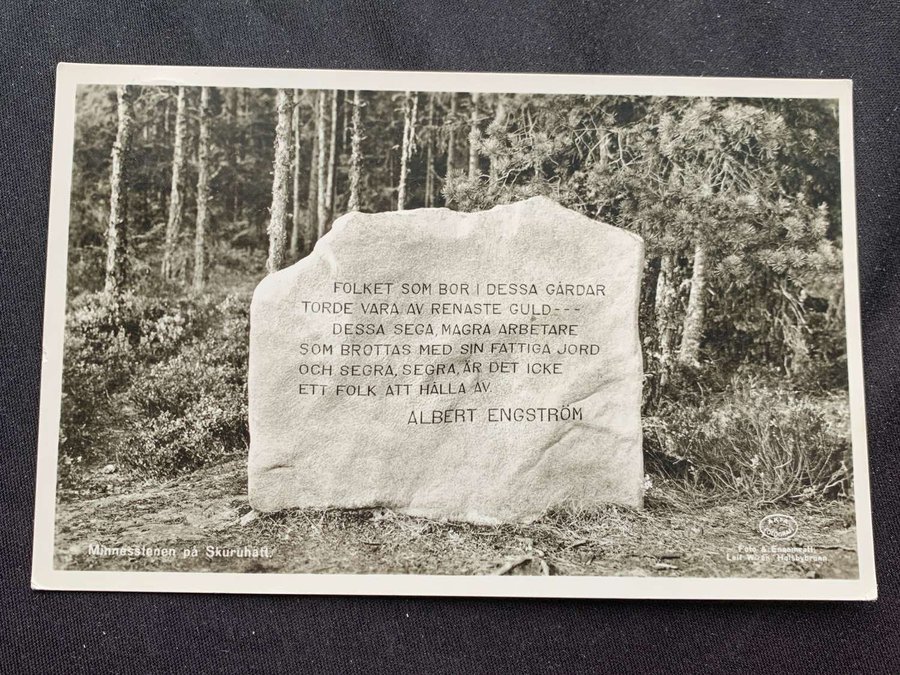 FOLKET SOM BOR I DESSA GÅRDAR
TORDE VARA AV RENASTE GULD---
DESSA SEGA, MAGRA ARBETARE
SOM BROTTAS MED SIN FATTIGA JORD
OCH SEGRA, SEGRA, ÄR DET ICKE
ETT FOLK ATT HÅLLA AV.
ALBERT ENGSTRÖM
Minnesstenen på Skuruhatt.
Foto & Ensamrätt
Leif